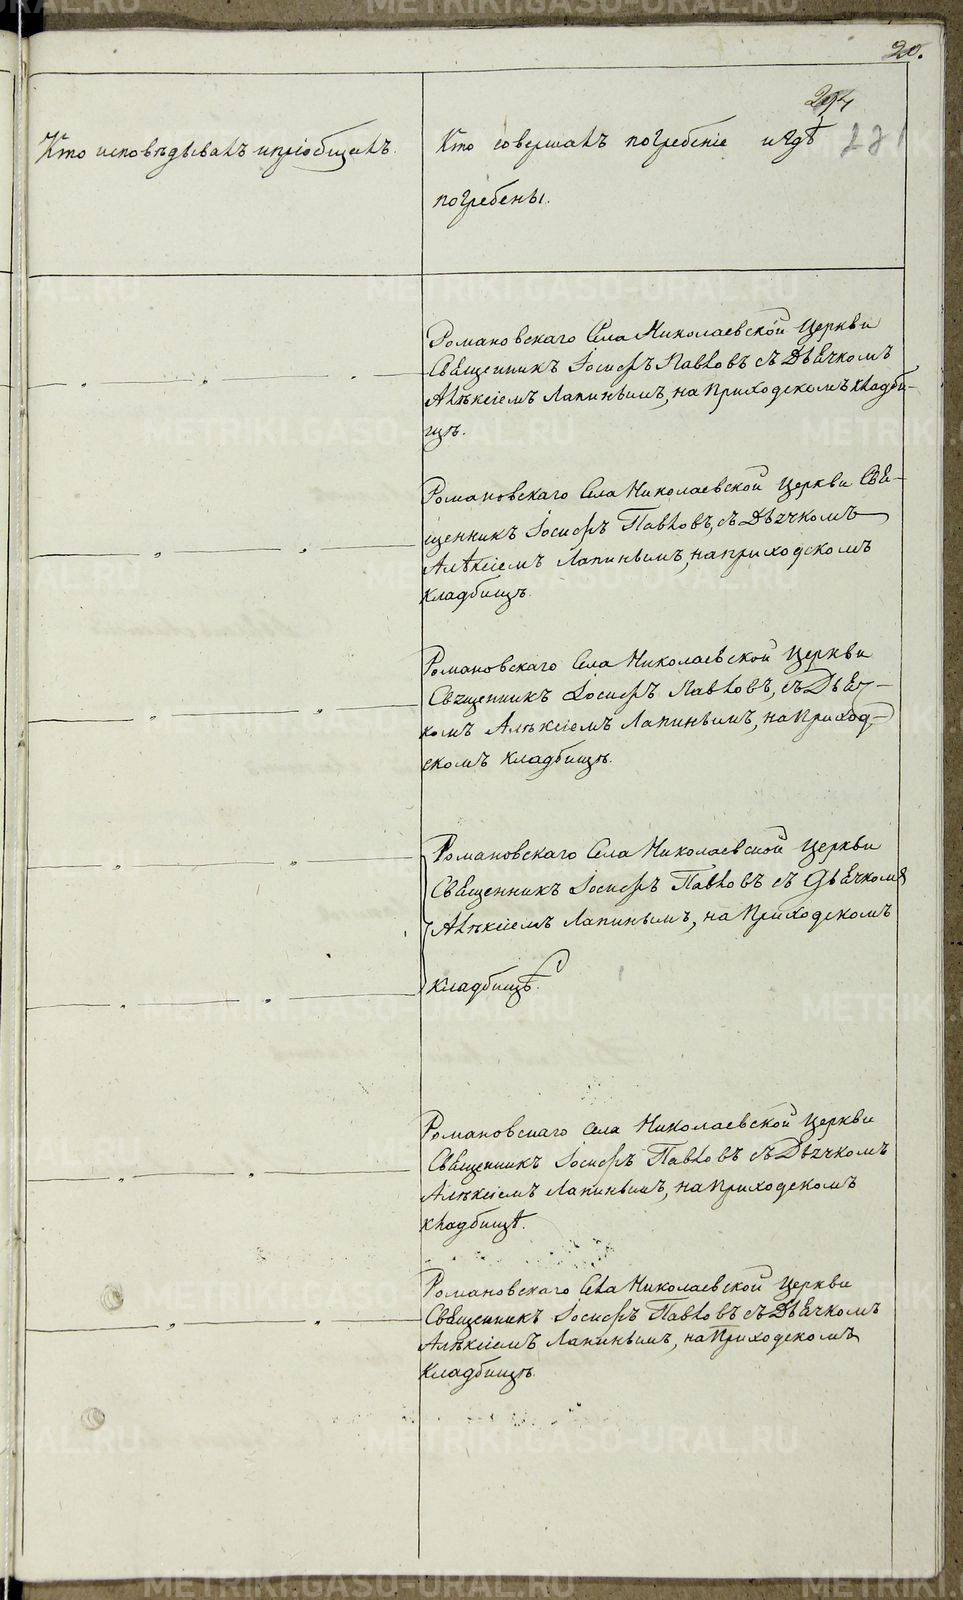 20.
Кто исповѣдывалъ и пріобщалъ.
Кто совершалъ погребеніе и гдѣ
погребены.
Романовскаго Села Николаевской Церкви
Священникъ Іосифъ Павловъ съ Дьячкомъ
Алѣксіемъ Лапинымъ, на Приходскомъ кладби-
щѣ.
Романовскаго Села Николаевской Церкви Свя-
щенникъ Іосифъ Павловъ, съ Дьячкомъ
Алѣксіемъ Лапинымъ, на приходскомъ
кладбищѣ.
Романовскаго Села Николаевской Церкви
Священникъ Іосифъ Павловъ, съ Дьяч-
комъ Алѣксіемъ Лапинымъ, на Приход-
скомъ кладбищѣ.
Романовскаго Села Николаевской Церкви
Священникъ Іосифъ Павловъ съ Дьячкомъ
Алѣксіемъ Лапинымъ, на Приходскомъ
кладбищѣ.
Романовскаго Села Николаевской Церкви
Священникъ Іосифъ Павловъ съ Дьячкомъ
Алѣксіемъ Лапинымъ, на Приходскомъ
кладбищѣ.
Романовскаго Села Николаевской Церкви
Священникъ Іосифъ Павловъ съ Дьячкомъ
Алѣксіемъ Лапинымъ, на Приходскомъ
Кладбищѣ.
METRIKI.GASO-URAL.RU